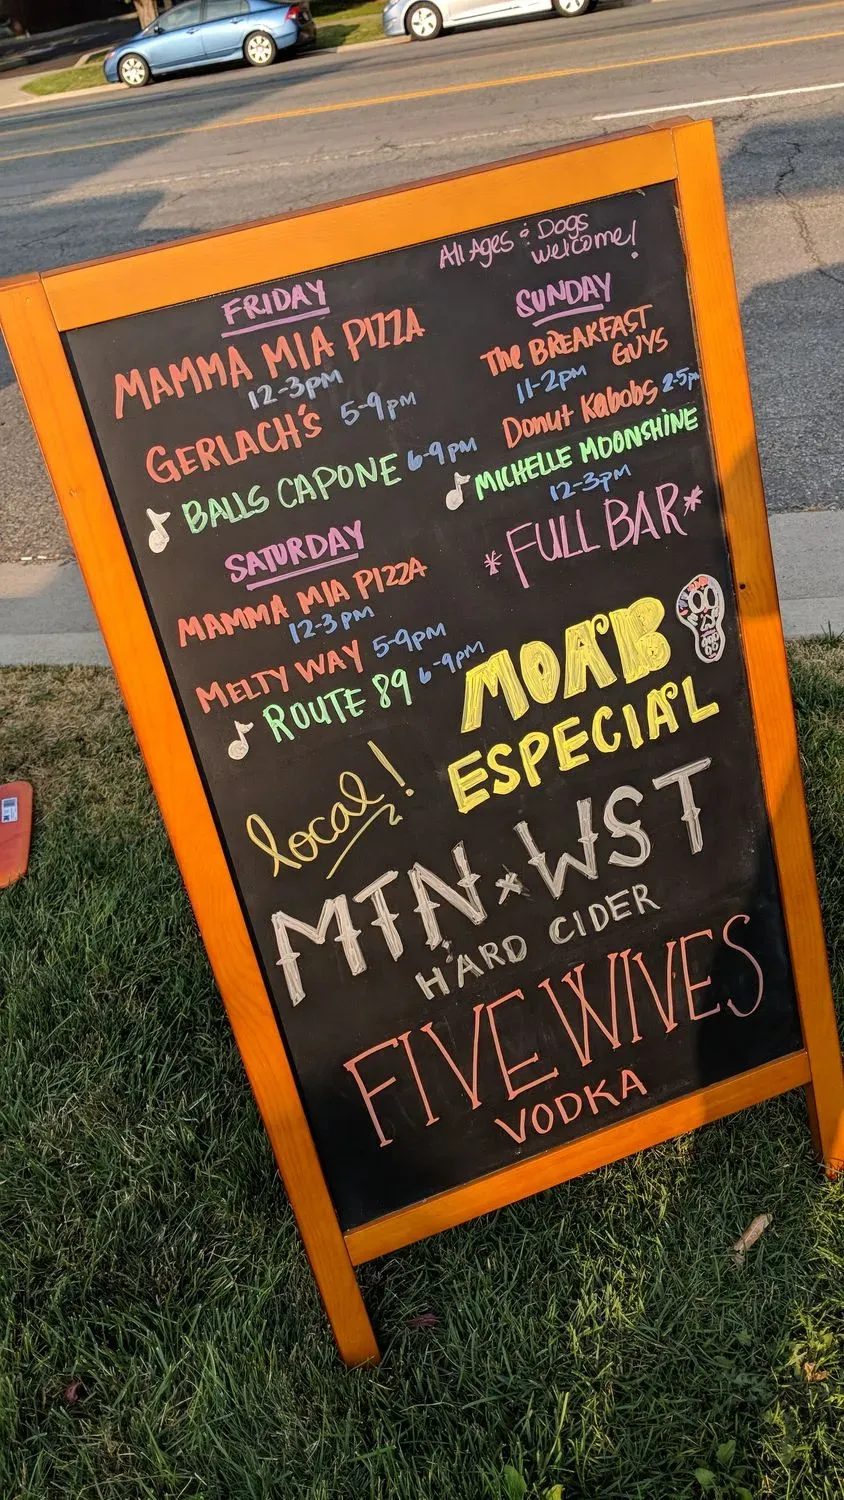 All Ages & Dogs
welcome!
FRIDAY
MAMMA MIA PIZZA
12-3pm
GERLACH'S 5-9pm
BALLS CAPONE 6-9pm
SATURDAY
MAMMA MIA PIZZA
12-3pm
MELTY WAY 5-9pm
ROUTE 89 6-9pm
SUNDAY
The BREAKFAST
GUYS
11-2pm
Donut Kabobs 2-5pm
MICHELLE MOONSHINE
12-3pm
*FULL BAR*
MOAB
ESPECIAL
local!
MTN x WST
HARD CIDER
FIVE WIVES
VODKA